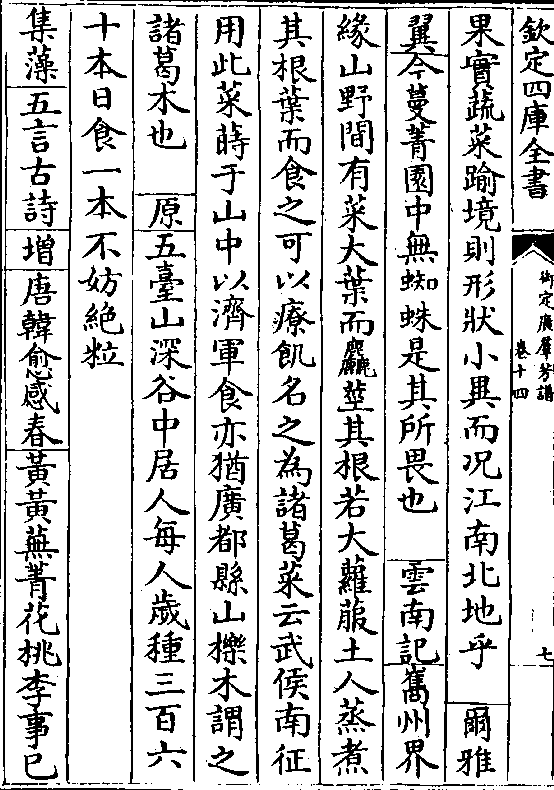 欽定四庫全書
御定廣羣芳譜
卷十四
七
果實蔬菜踰境則形狀小異而况江南北地乎 爾雅
翼今蔓菁園中無蜘蛛是其所畏也 雲南記巂州界
緣山野間有菜大葉而麤莖其根若大蘿菔土人蒸煮
其根葉而食之可以療飢名之為諸葛菜云武侯南征
用此菜蒔于山中以濟軍食亦猶廣都縣山櫟木謂之
諸葛木也 原五臺山深谷中居人每人歲種三百六
十本日食一本不妨絶粒
集藻五言古詩增唐韓愈感春黃黃蕪菁花桃李事已